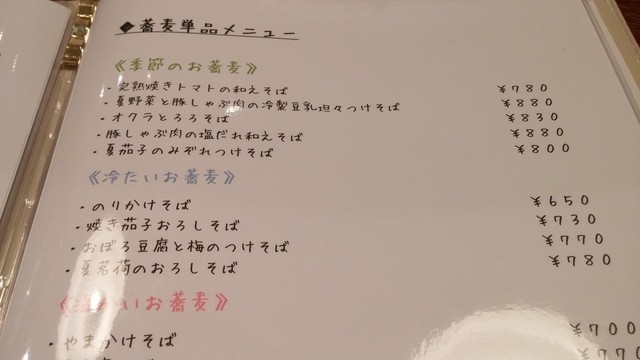 ◆蕎麦単品メニュー
《季節のお蕎麦》
・完熟焼きトマトの和えそば ￥780
・夏野菜と豚しゃぶ肉の冷製豆乳坦々つけそば ￥880
・オクラとろろそば ￥830
・豚しゃぶ肉の塩だれ和えそば ￥880
・夏茄子のみぞれつけそば ￥800
《冷たいお蕎麦》
・のりかけそば ￥650
・焼き茄子おろしそば ￥730
・おぼろ豆腐と梅のつけそば ￥770
・夏茗荷のおろしそば ￥780
かいお蕎麦》
・やまかけそば ￥700